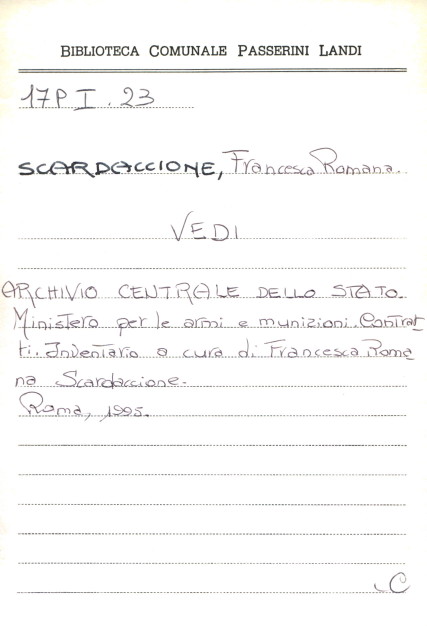 BIBLIOTECA COMUNALE PASSERINI LANDI
17P I. 23
SCARDACCIONE, Francesca Romana.
VEDI
ARCHIVIO CENTRALE DELLO STATO.
Ministero per le armi e munizioni. Contrat
ti. Inventario a cura di Francesca Roma
na Scardaccione.
Roma, 1995.
C